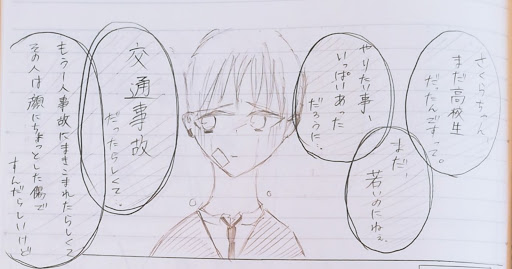 さくらちゃん、
まだ高校生
だったんですって。
まだ、
若いのにねぇ。
やりたい事、
いっぱいあった
だろうに…。
交通事故
だったらしくて。
もう1人事故にまきこまれたらしくて
その人は顔にちょっとした傷で
すんだらしいけど